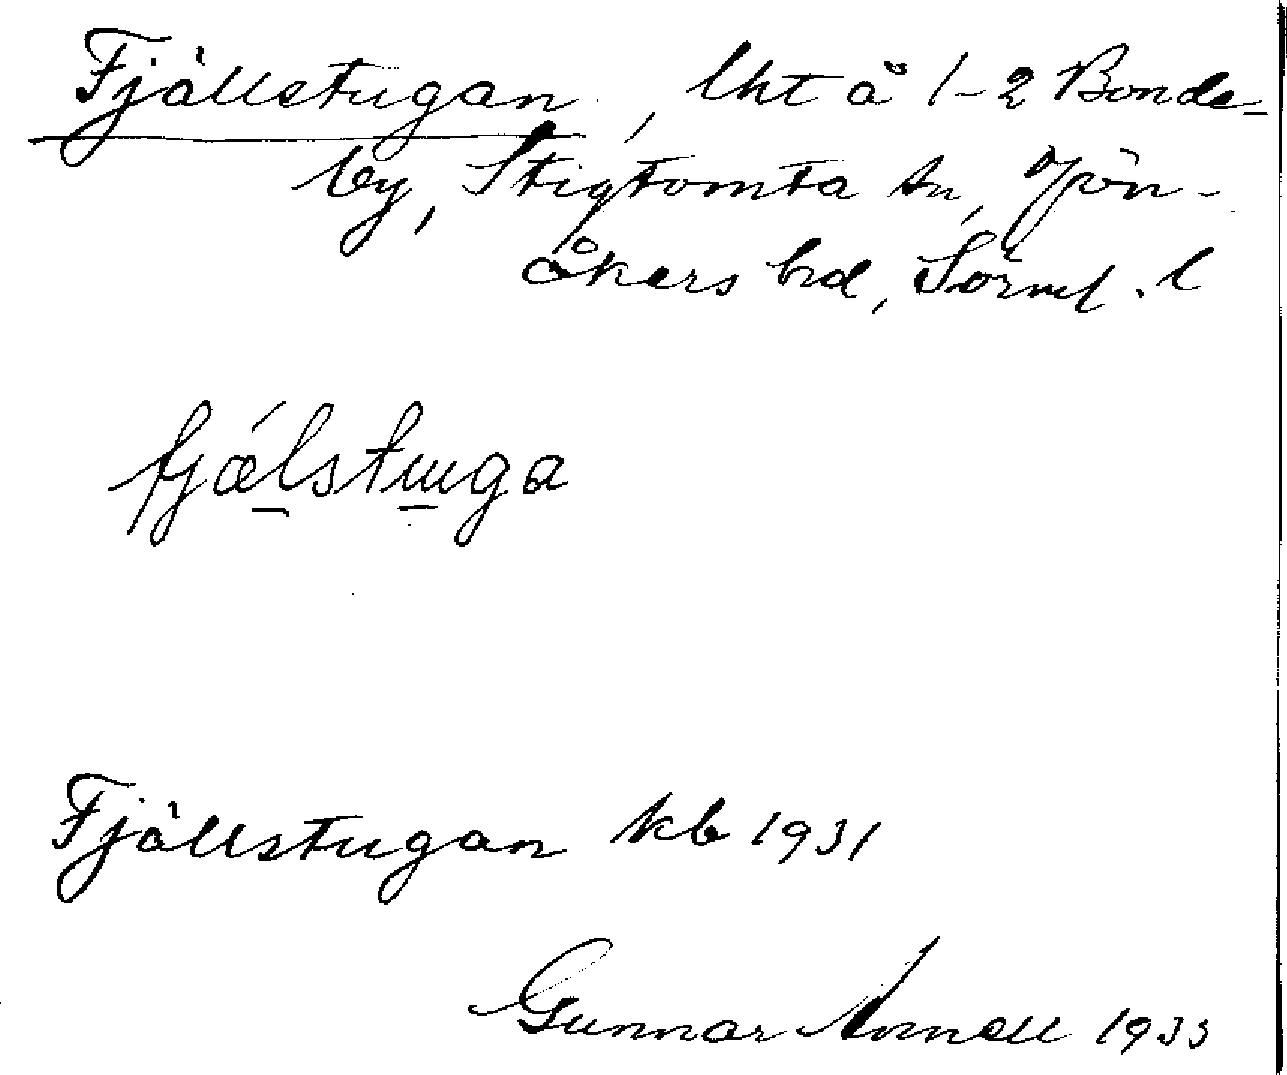 Fjällstugan, lht å 1-2 Bonde-
by, Stigtomta sn, Jön-
åkers hd, Sörml. l
fjǽ̱lstu̱ga
Fjällstugan kb 1931
Gunnar Annell 1933